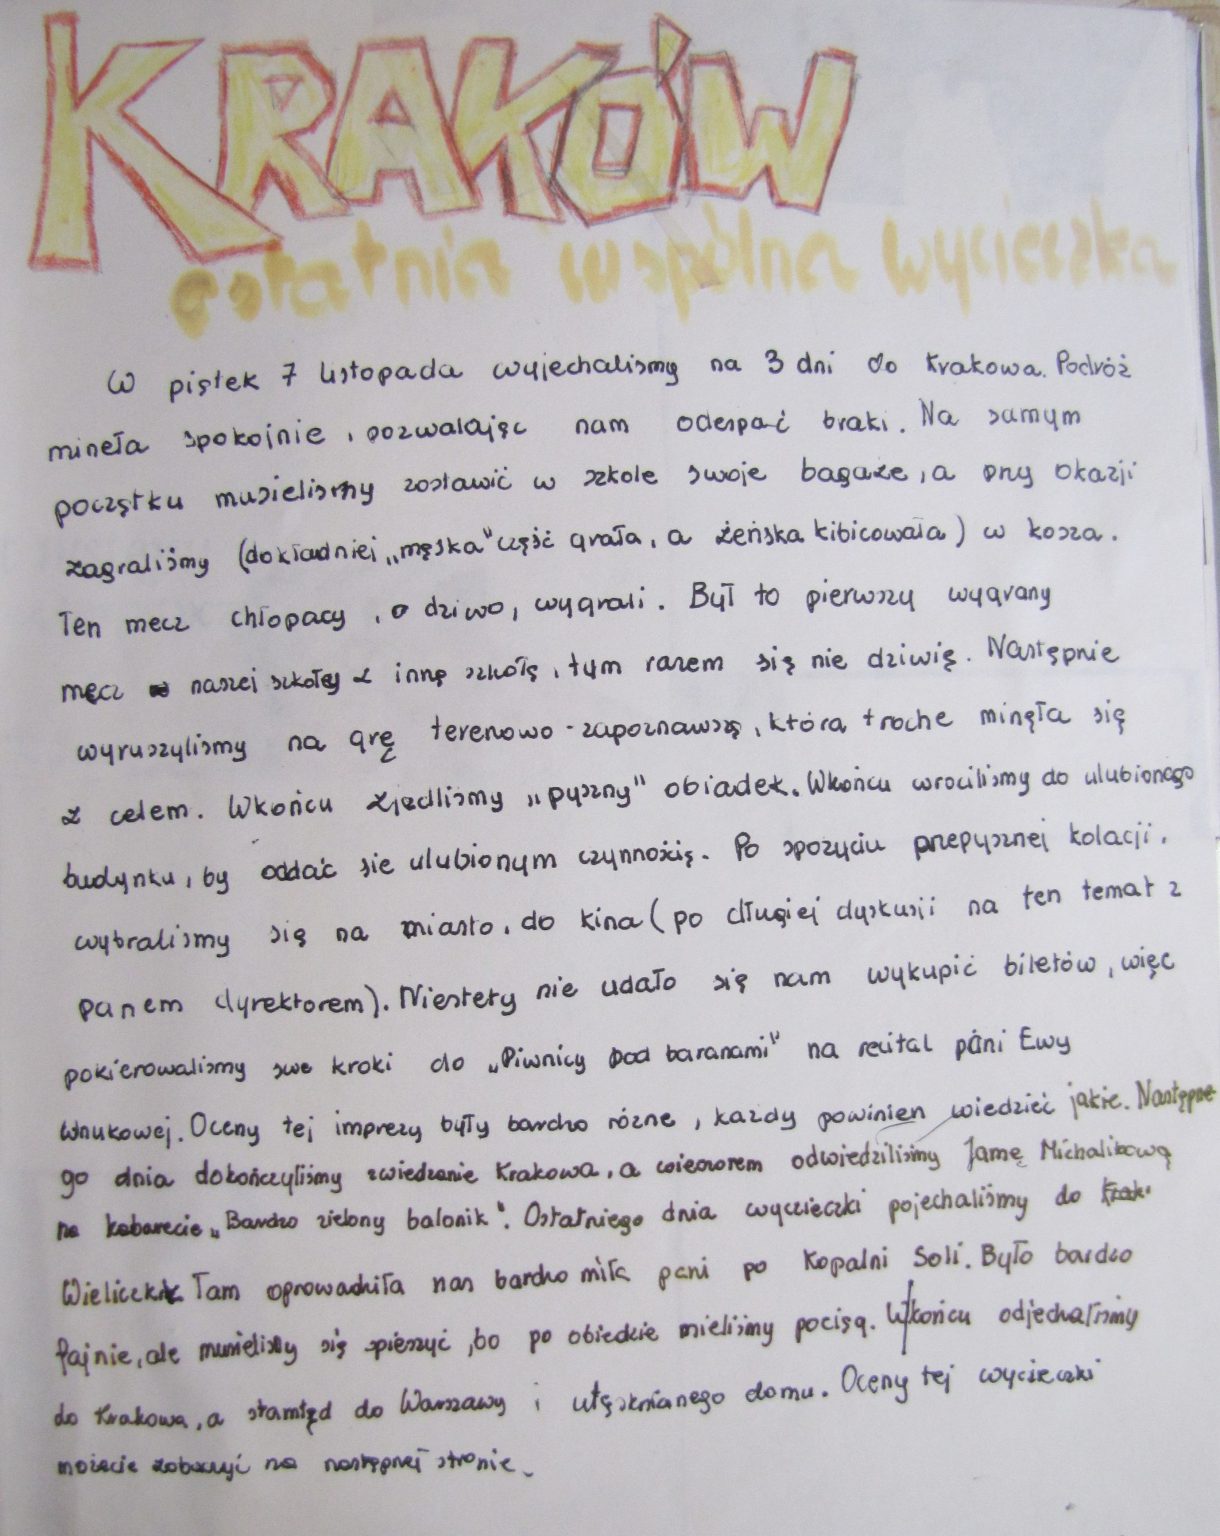 KRAKÓW
ostatnia wspólna wycieczka
W piątek 7 listopada wyjechalismy na 3 dni do Krakowa. Podróż
mineła spokojnie, pozwalając nam odespać braki. Na samym
początku musielismy zostawić w szkole swoje bagaże, a przy okazji
zagraliśmy (dokładniej „męska" część grała, a żeńska kibicowała) w kosza.
Ten mecz chłopacy, o dziwo, wygrali. Był to pierwszy wygrany
mecz naszej szkoły z inną szkołą, tym razem się nie dziwię. Następnie
wyruszylismy na grę terenowo-zapoznawszą, która troche minęła się
z celem. Wkońcu zjedlismy „pyszny" obiadek. Wkońcu wrocilismy do ulubionego
budynku, by oddać sie ulubionym czynnością. Po spożyciu przepysznej kolacji,
wybralismy się na miasto, do kina (po długiej dyskusji na ten temat z
panem dyrektorem). Niestety nie udało się nam wykupić biletów, więc
pokierowalismy swe kroki do „Piwnicy pod baranami" na recital pani Ewy
Wnukowej. Oceny tej imprezy były bardzo rózne, kazdy powinien wiedzieć jakie. Następne-
go dnia dokończyliśmy zwiedzanie Krakowa, a wieczorem odwiedziliśmy Jamę Michalikową
na kabarecie „Bardzo zielony balonik". Ostatniego dnia wycieczki pojechaliśmy do Krak-
Wieliczki. Tam oprowadziła nas bardzo miła pani po Kopalni Soli. Było bardzo
fajnie, ale musielismy się spieszyć, bo po obiedzie mieliśmy pociąg. Wkońcu odjechaliśmy
do Krakowa, a stamtąd do Warszawy i utęsknianego domu. Oceny tej wycieczki
możecie zobaczyć na następnej stronie.